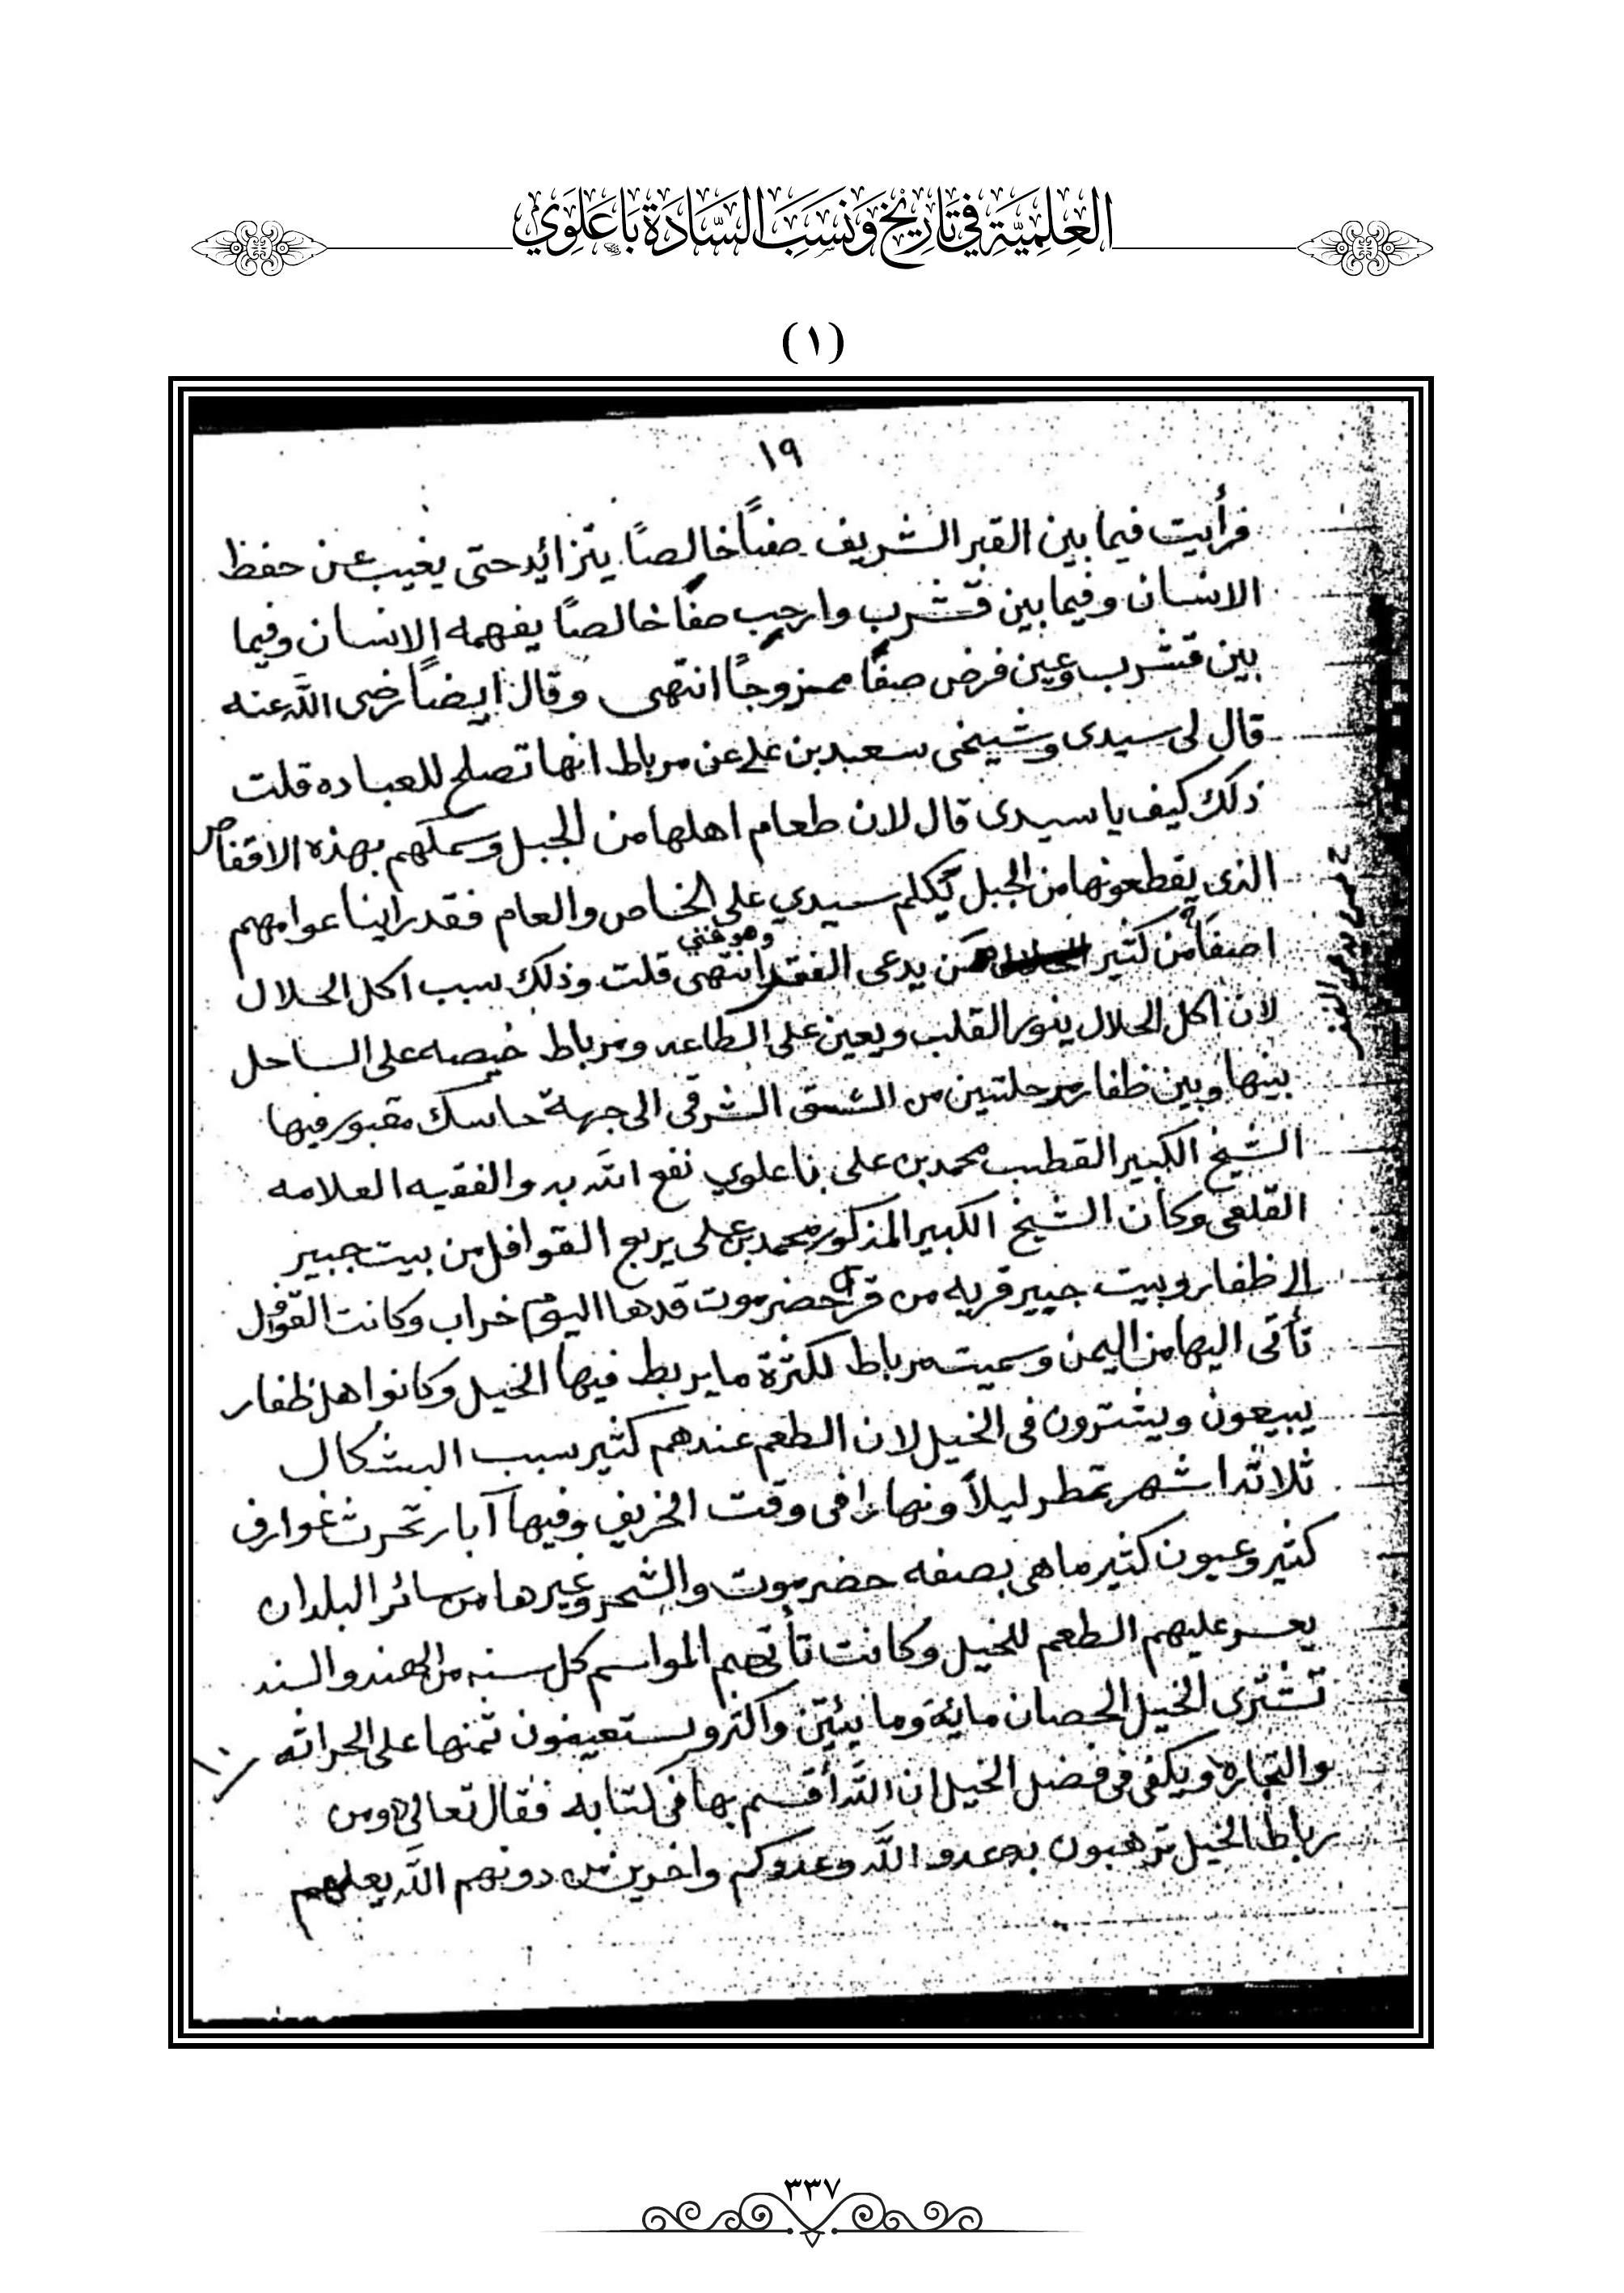 العِلمِيَّة في تَاريخ وَنَسَب السَّادَة بَاعَلَوِي
(١)
١٩
فرأيت فيما بين القبر الشريف صفاً خالصاً يتزائد حتى يغيب عن حفظ
الانسان وفيما بين قشرب وارجب صفاً خالصاً يفهمه الانسان وفيما
بين قشرب وعين فرض صفاً ممزوجاً انتهى وقال ايضاً رضى الله عنه
قال لى سيدى وشيخى سعيد بن على عن مرباط انها تصلح للعباده قلت
ذلك كيف يا سيدى قال لان طعام اهلها من الجبل وسمكهم بهذه الاقفاص
الذى يقطعونها من الجبل يكلم سيدي على الخاص والعام فقد راينا عوامهم
اصفا من كثير من يدعى الفقر انتهى قلت وذلك سبب اكل الحلال
لان اكل الحلال ينور القلب ويعين على الطاعه ومرباط خيصه على الساحل
بينها وبين ظفار مرحلتين من الشق الشرقى الى جهة حاسك مقبور فيها
الشيخ الكبير القطب محمد بن على باعلوي نفع الله به والفقيه العلامه
القلعى وكان الشيخ الكبير المذكور محمد بن على يربع القوافل من بيت جبير
الى ظفار وبيت جبير قريه من قرى حضرموت قدها اليوم خراب وكانت القوافل
تأتى اليها من اليمن وسميت مرباط لكثرة ما يربط فيها الخيل وكانوا اهل ظفار
يبيعون ويشترون فى الخيل لان الطعم عندهم كثير سبب البشكال
ثلاثة اشهر تمطر ليلاً ونهاراً فى وقت الخريف وفيها آبار تحرث غوارف
كثير وعيون كثير ما هى بصفه حضرموت والشحر وغيرها من سائر البلدان
يعسر عليهم الطعم للخيل وكانت تأتيهم المواسم كل سنه من الهند والسند
تشترى الخيل الحصان مائة ومائيتين واكثر ويستعينون ثمنها على الحراثه
والتجاره ويكفى فى فضل الخيل ان الله أقسم بها فى كتابه فقال تعالى ومن
رباط الخيل ترهبون به عدو الله وعدوكم واخرين من دونهم الله يعلمهم
٣٣٧